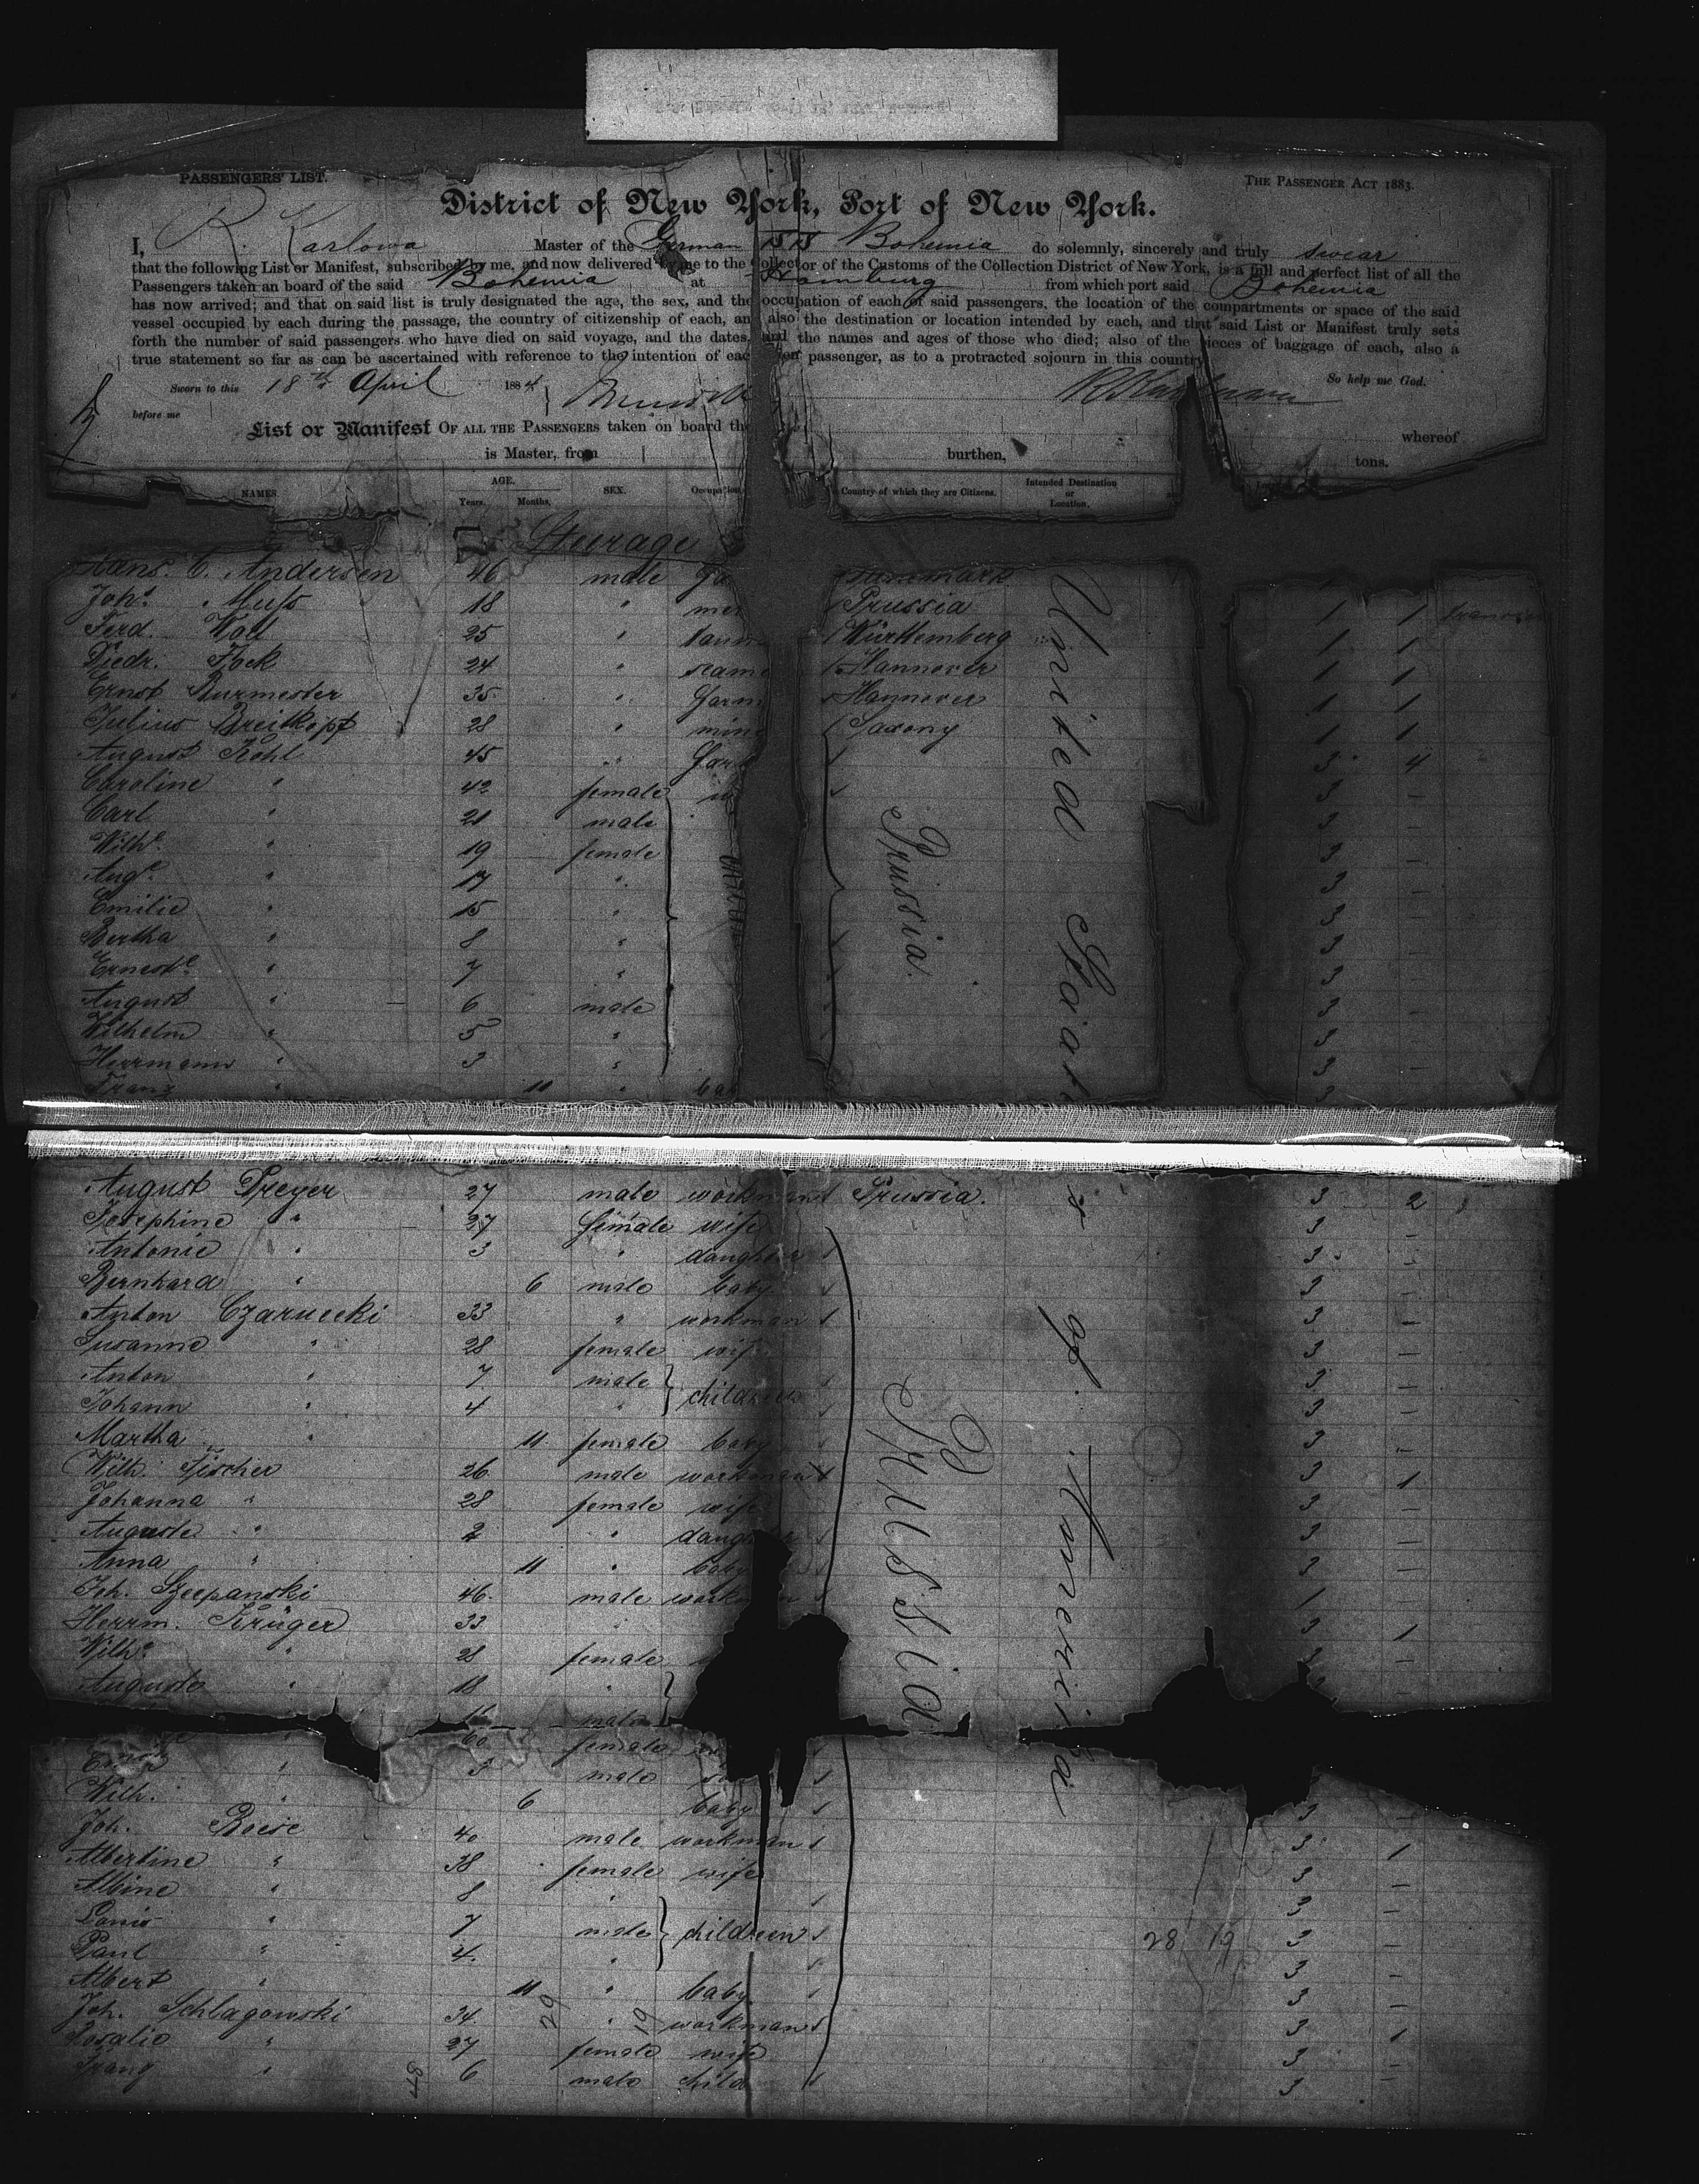 PASSENGERS' LIST.
THE PASSENGER ACT 1883.
District of New York, Port of New York.
I, R. Karlowa Master of the German SS Bohemia do solemnly, sincerely and truly swear
that the following List or Manifest, subscribed by me, and now delivered by me to the Collector of the Customs of the Collection District of New York, is a full and perfect list of all the
Passengers taken on board of the said Bohemia at Hamburg from which port said Bohemia
has now arrived; and that on said list is truly designated the age, the sex, and the occupation of each of said passengers, the location of the compartments or space of the said
vessel occupied by each during the passage, the country of citizenship of each, an also the destination or location intended by each, and that said List or Manifest truly sets
forth the number of said passengers who have died on said voyage, and the dates, and the names and ages of those who died; also of the pieces of baggage of each, also a
true statement so far as can be ascertained with reference to the intention of eac passenger, as to a protracted sojourn in this country
So help me God.
Sworn to this 18th April 1884
before me
List or Manifest OF ALL THE PASSENGERS taken on board th whereof
is Master, from burthen, tons.
NAMES. AGE. Years. Months. SEX. Occupation Country of which they are Citizens. Intended Destination or Location.
Steerage
Hans C. Andersen 46 male
Joh. Muss 18 " mer Prussia 1 1
Ferd. 25 " Württemberg 1 1
Diedr. Fock 24 " seam Hannover 1 1
Ernst Burmester 35 " farm Hannover 1 1
Julius Breitkopf 28 " min Saxony 1 1
August Kohl 45 " 3 4
Caroline " 42 female 3 —
Carl " 21 male 3 —
Wilhe " 19 female 3 —
Auge " 17 " 3 —
Emilie " 15 " 3 —
Bertha " 8 " 3 —
Erneste " 7 " 3 —
August " 6 male 3 —
Wilhelm " 5 " 3 —
Herrmann " 3 " 3 —
Franz " 10 " bab 3
Prussia.
United States of America
August Preyer 27 male workman Prussia. 3 2
Josephine " 27 female wife 3 —
Antonie " 3 " daughter 3 —
Bernhard " 6 male baby 3 —
Anton Czarnecki 33 " workman 3 —
Susanne " 28 female wife 3 —
Anton " 7 male children 3 —
Johann " 4 " 3 —
Martha " 11 female baby 3 —
Wilh. Fischer 26 male workman 3 1
Johanna " 28 female wife 3 —
Auguste " 2 " daughter 3 —
Anna " 11 " baby 3 —
Joh. Szczepanski 46 male workman 1
Herrm. Krüger 33 3 1
Wilhe " 28 female —
Auguste " 18 " —
male
" 60 female
Ernst " 3 male
Wilh. " 6 baby 3 —
Joh. Roese 40 male workman 3 1
Albertine " 38 female wife 3 —
Albine " 8 " 3 —
Louis " 7 male children 3 —
Paul " 4 " 3 —
Albert " 11 " baby 3 —
Joh. Schlagowski 34 " workman 3 1
Rosalie " 27 female wife 3 —
Franz " 6 male child 3 —
Prussia
28 19
29 19